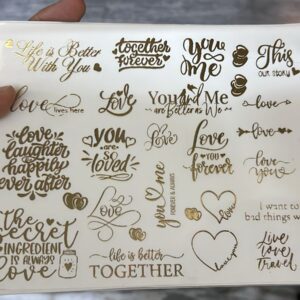 Life is Better
With You
together
forever
You
&
Me
This
OUR STORY
love
lives here
Love
You and Me
are Better as We
love
laughter
happily
ever after
you
are
so
loved
Love
Love
YOU
forever
love
love
love
you
you
me
FOREVER & ALWAYS
Love
love
love you
I want to
bad things w
The
Secret
INGREDIENT
IS ALWAYS
Love
life is better
TOGETHER
Live
love
travel